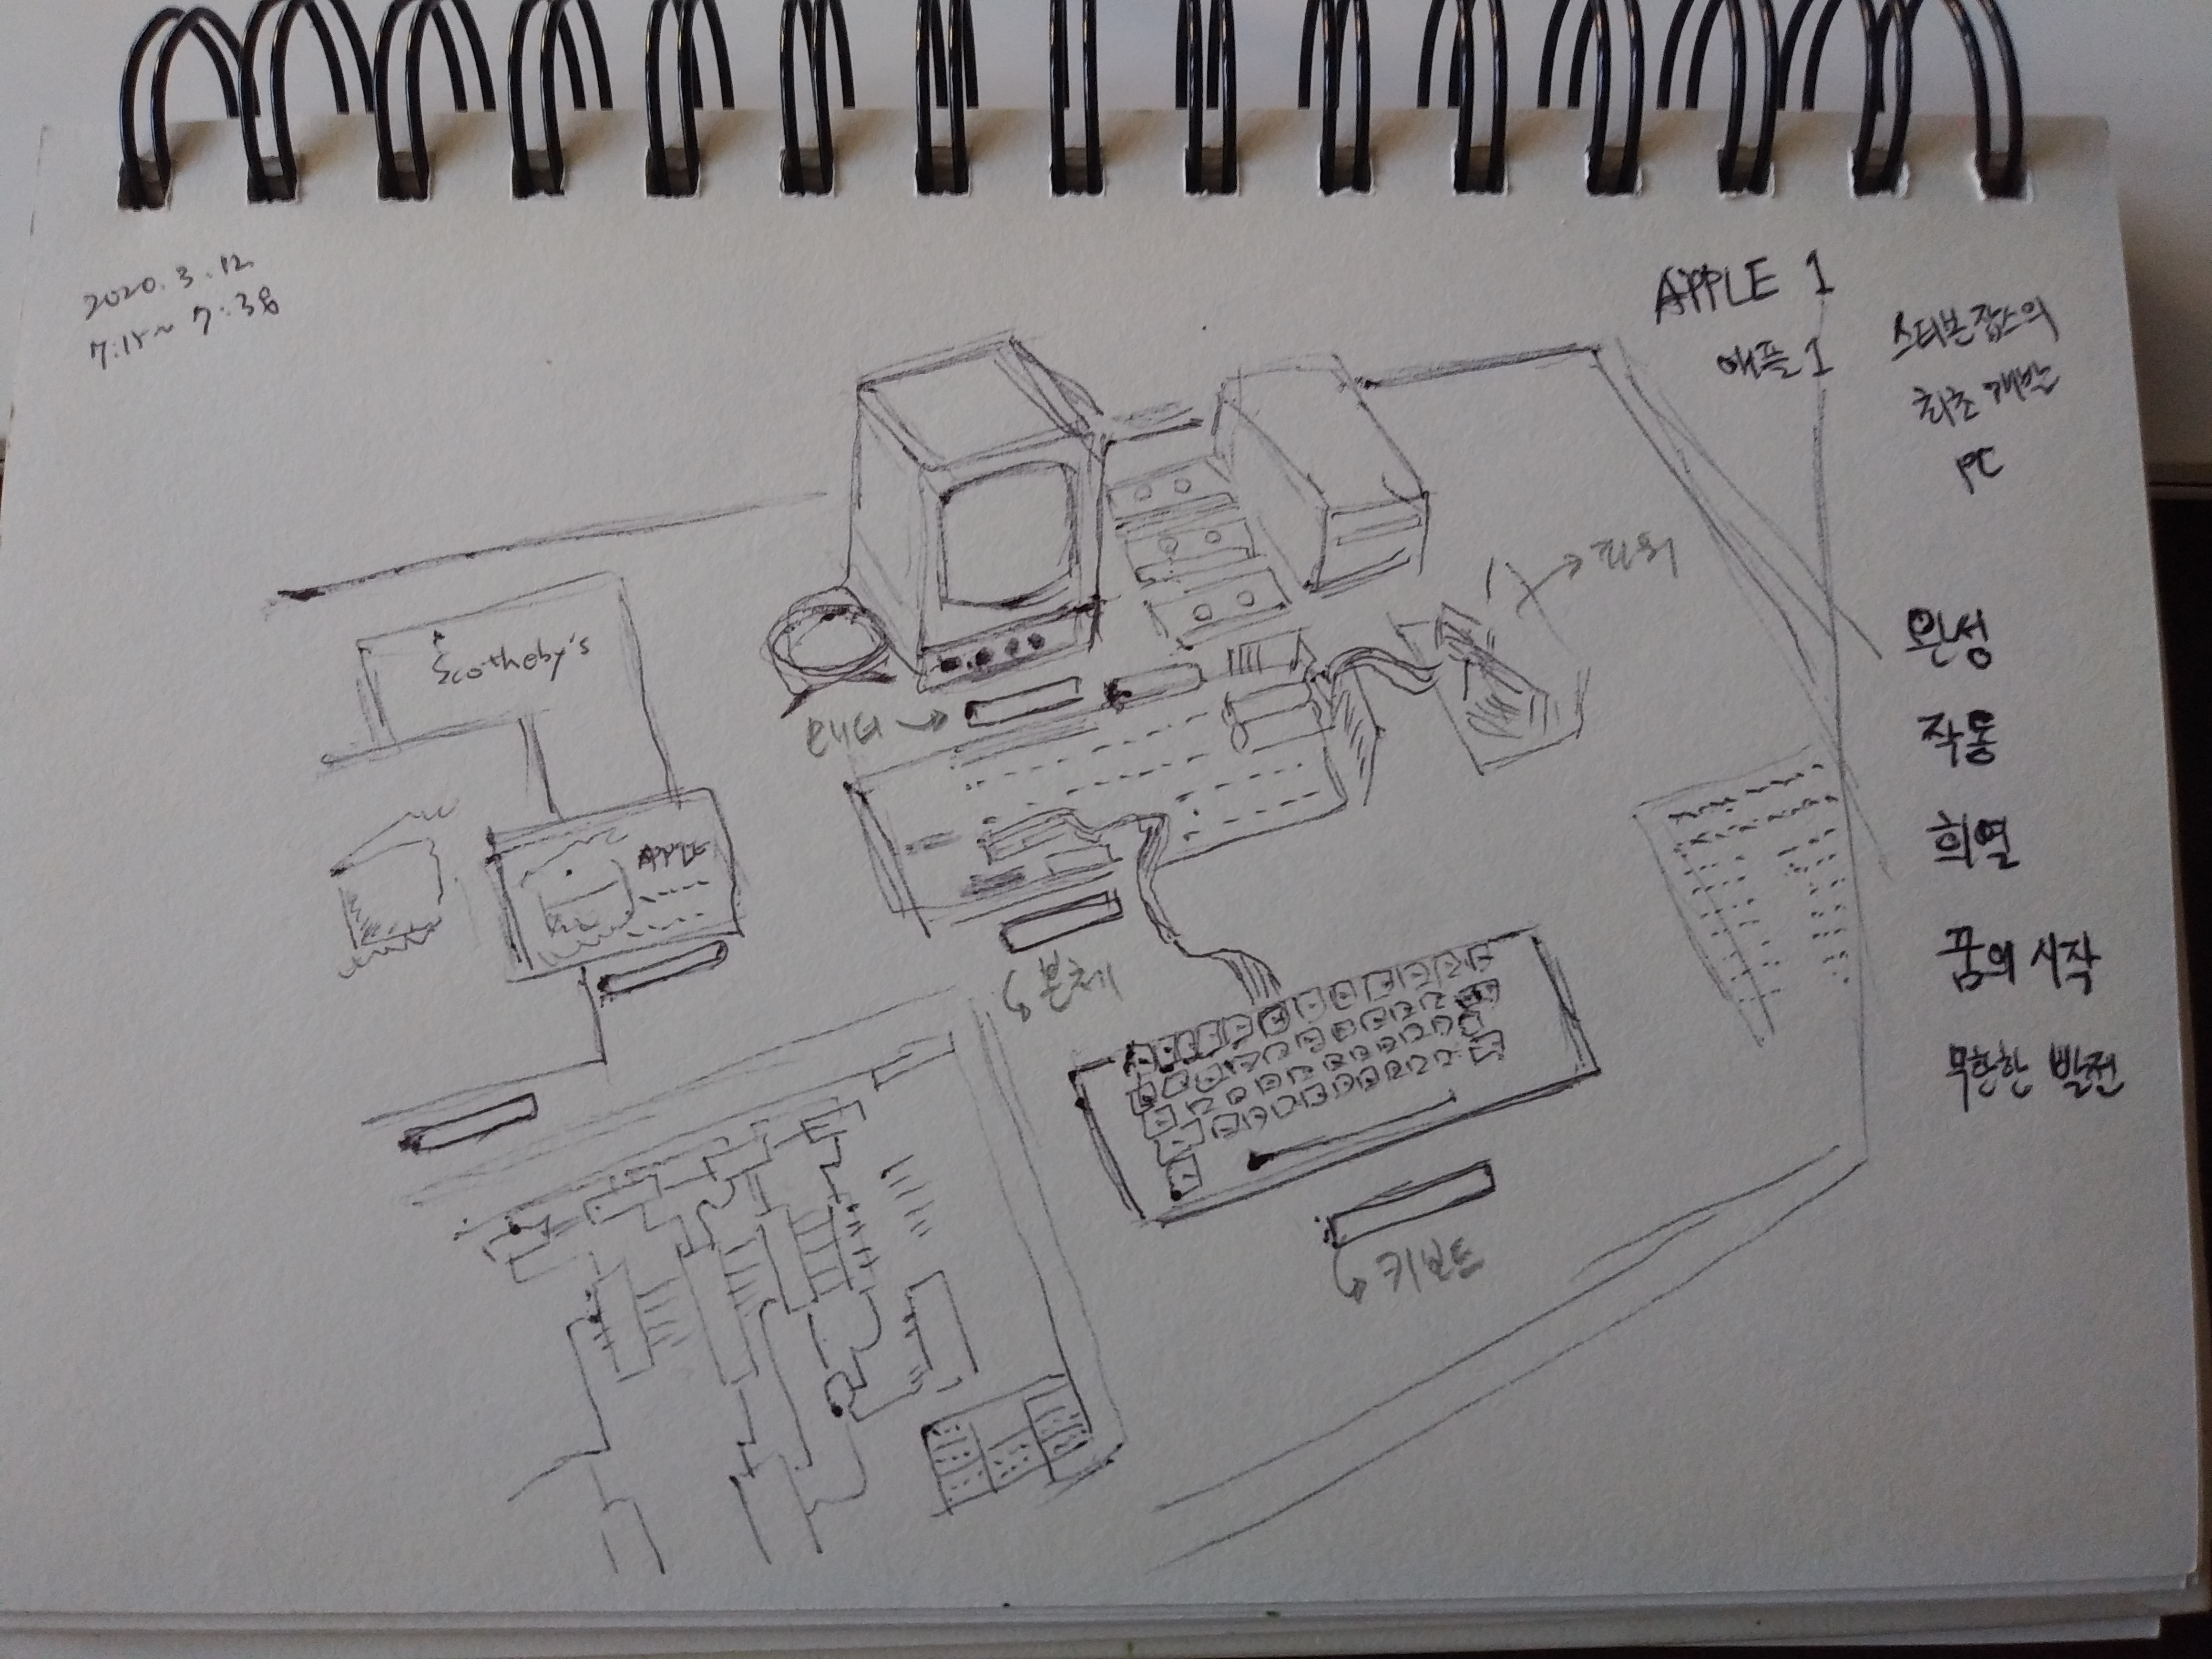 2020.3.12
7:15~7:38
APPLE 1
애플1
스티븐잡스의
최초 개발
PC
파워
Scotheby's
APPLE
본체
키보드
완성
작동
희열
꿈의 시작
무한한 발전